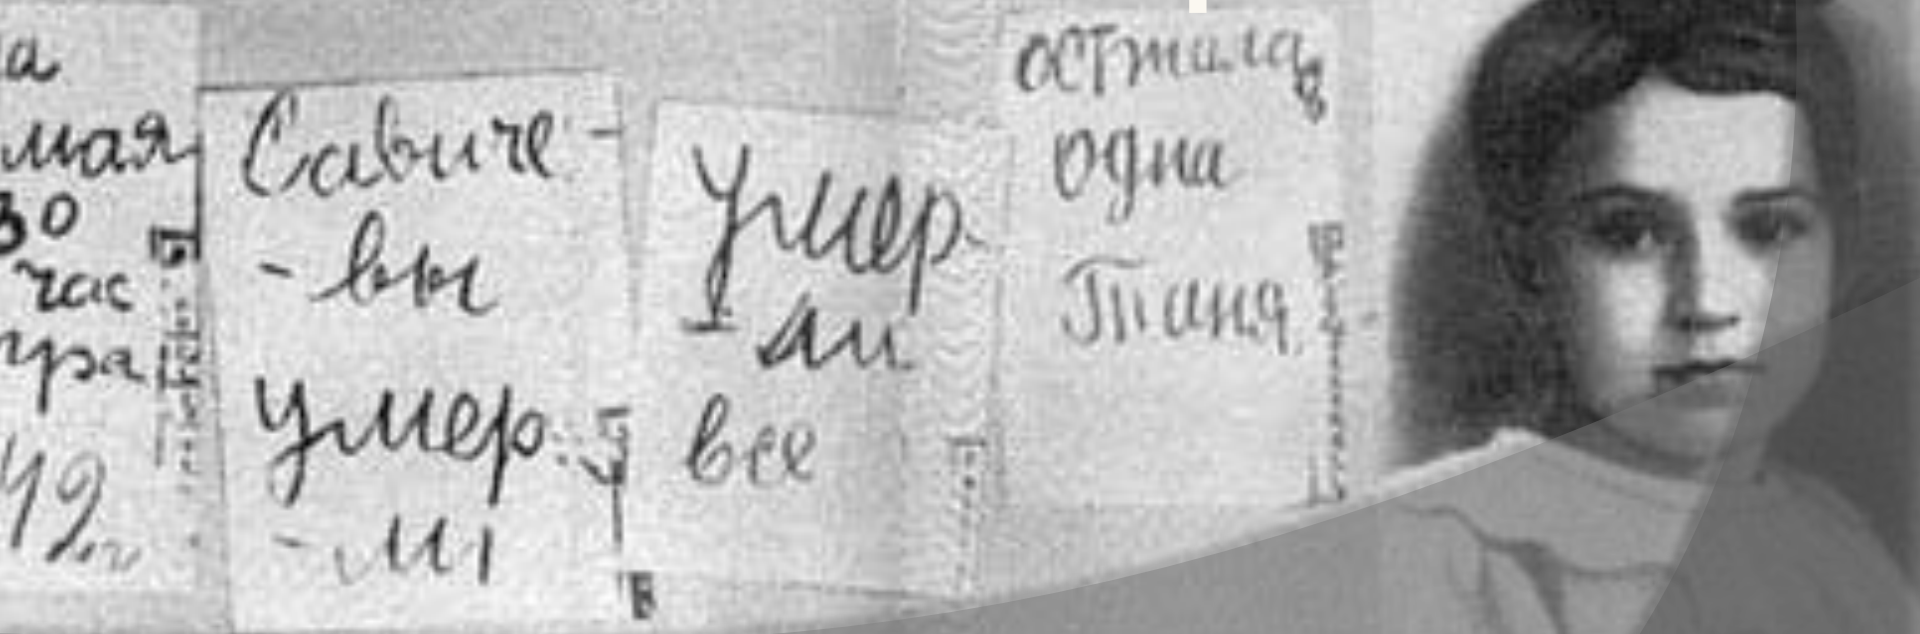 а
мая
30
час
тра
42 г
Савиче-
-вы
умер
-ли
Умер-
-ли
все
осталась
одна
Таня